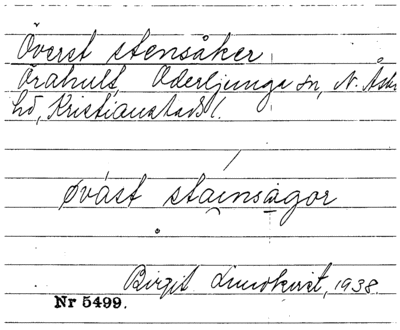 Överst stensåker
Örahult, Oderljunga sn, N. Åsbo
hd, Kristianstads l.
øvást stainsågor
Birgit Lundkvist, 1938.
Nr 5499.